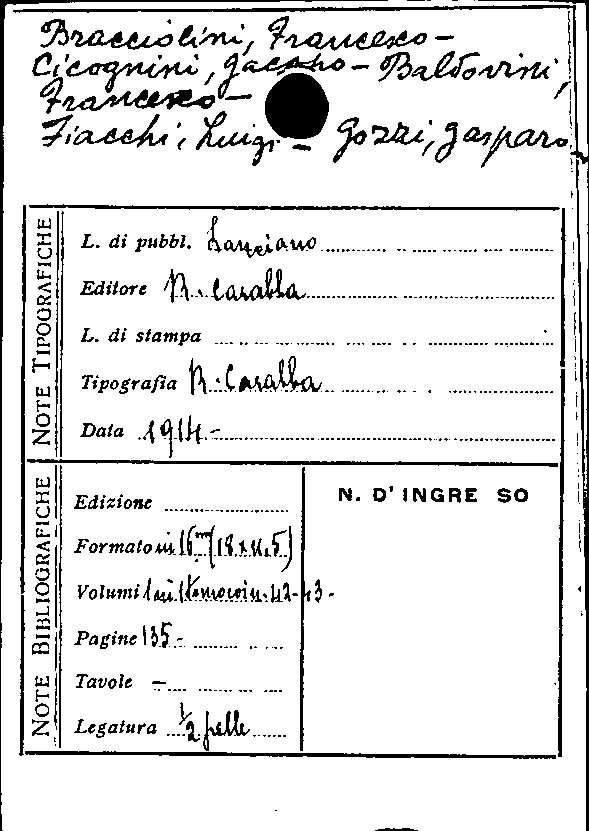 Bracciolini, Francesco -
Cicognini, Jacopo - Baldovini,
Francesco -
Fiacchi, Luigi - Gozzi, Gasparo -
NOTE TIPOGRAFICHE
L. di pubbl. Lanciano
Editore R. Carabba
L. di stampa
Tipografia R. Carabba
Data 1914 -
NOTE BIBLIOGRAFICHE
Edizione
Formato in 16mo (18 x 11.5)
Volumi 1 in n. 42-43 -
Pagine 135 -
Tavole -
Legatura 1/2 pelle
N. D'INGRE SO